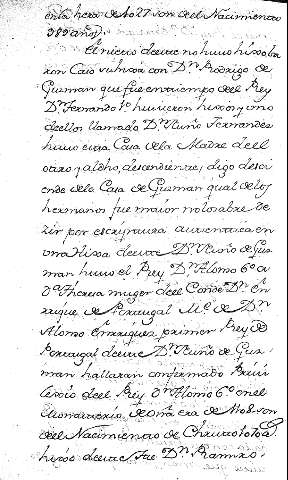 en la hera de 1027 son del Nacimiento
989 años
El nieto deeste no huuo hijo ba
ron Caso su hija con Dⁿ. Rodrigo de
Gusman que fue en tiempo del Rey
Dⁿ. Fernando 1º huuieron hijos y uno
de ellos llamado Dⁿ. Nuño Fernandes
huuo esta Casa de la Madre de el
otro y al dho, descendiente, digo desci
ende de la Casa de Gusman qual de los
hermanos fue maior no lo sabre de
zir por escriptura autentica en
una Hija deeste Dⁿ. Nuño de Gus
man huuo el Rey Dⁿ. Alonso 6º a
Dª Theresa muger de el Conde Dⁿ. En
rrique de Portugal Me. de Dⁿ.
Alonso Enrriquez primer Rey de
Portugal deeste Dⁿ. Nuño de Gus
man hallaran confirmado Preui
lexio de el Rey Dⁿ Alonso 6º en el
Monasterio de Oña era de son
del Nacimiento de Christo
hijos deeste fue Dⁿ. Ramiro